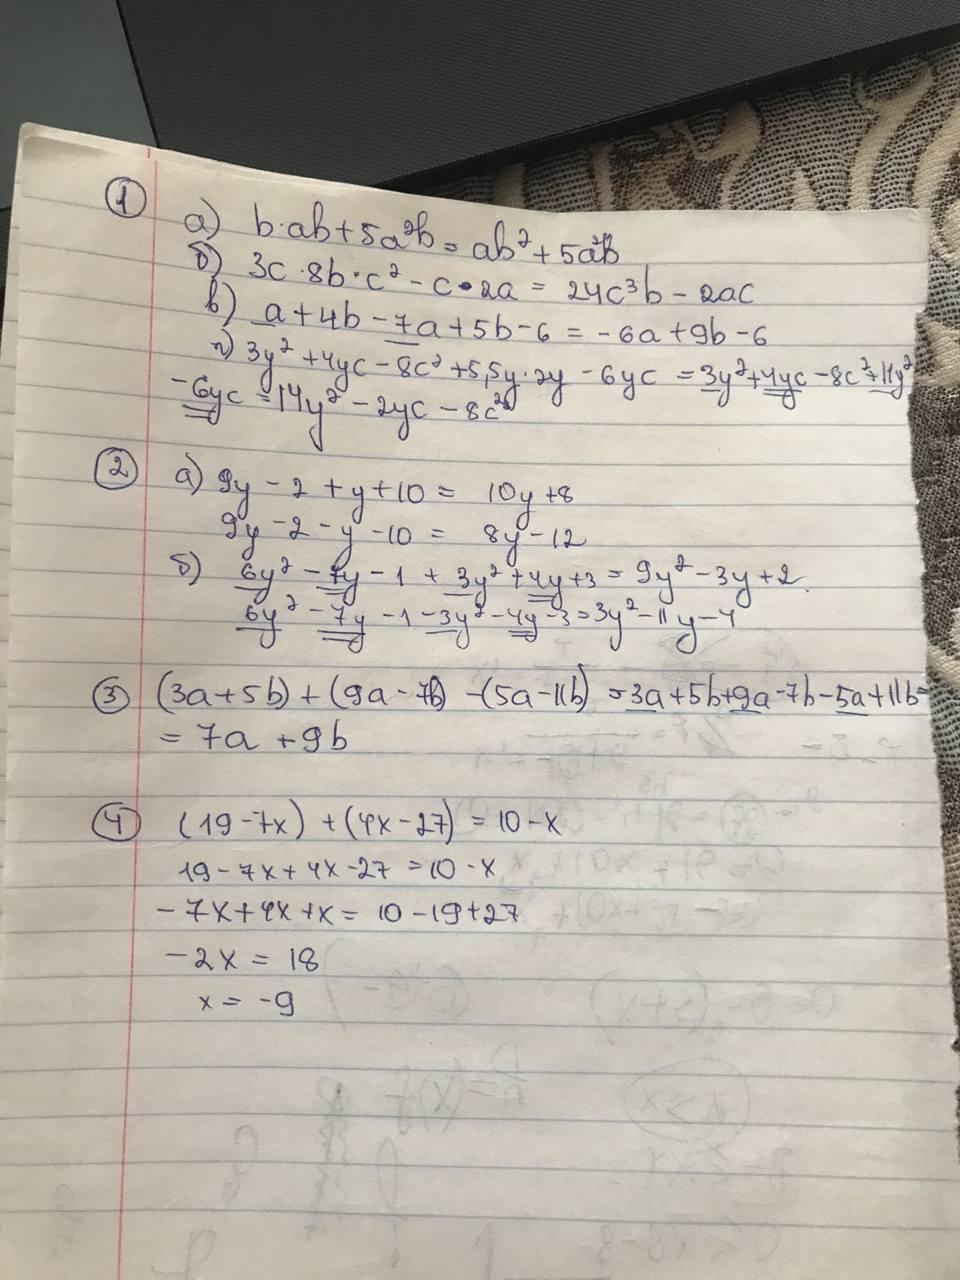 1 а) b·ab+5a²b = ab²+5a²b
б) 3c·8b·c² - c·2a = 24c³b - 2ac
в) a+4b-7a+5b-6 = -6a+9b-6
г) 3y²+4yc-8c²+5,5y·2y-6yc = 3y²+4yc-8c²+11y²
-6yc = 14y²-2yc-8c²
2 а) 9y-2+y+10 = 10y+8
9y-2-y-10 = 8y-12
б) 6y²-7y-1+3y²+4y+3 = 9y²-3y+2
6y²-7y-1-3y²-4y-3 = 3y²-11y-4
3 (3a+5b)+(9a-7b)-(5a-11b) = 3a+5b+9a-7b-5a+11b=
= 7a+9b
4 (19-7x)+(4x-27) = 10-x
19-7x+4x-27 = 10-x
-7x+4x+x = 10-19+27
-2x = 18
x = -9